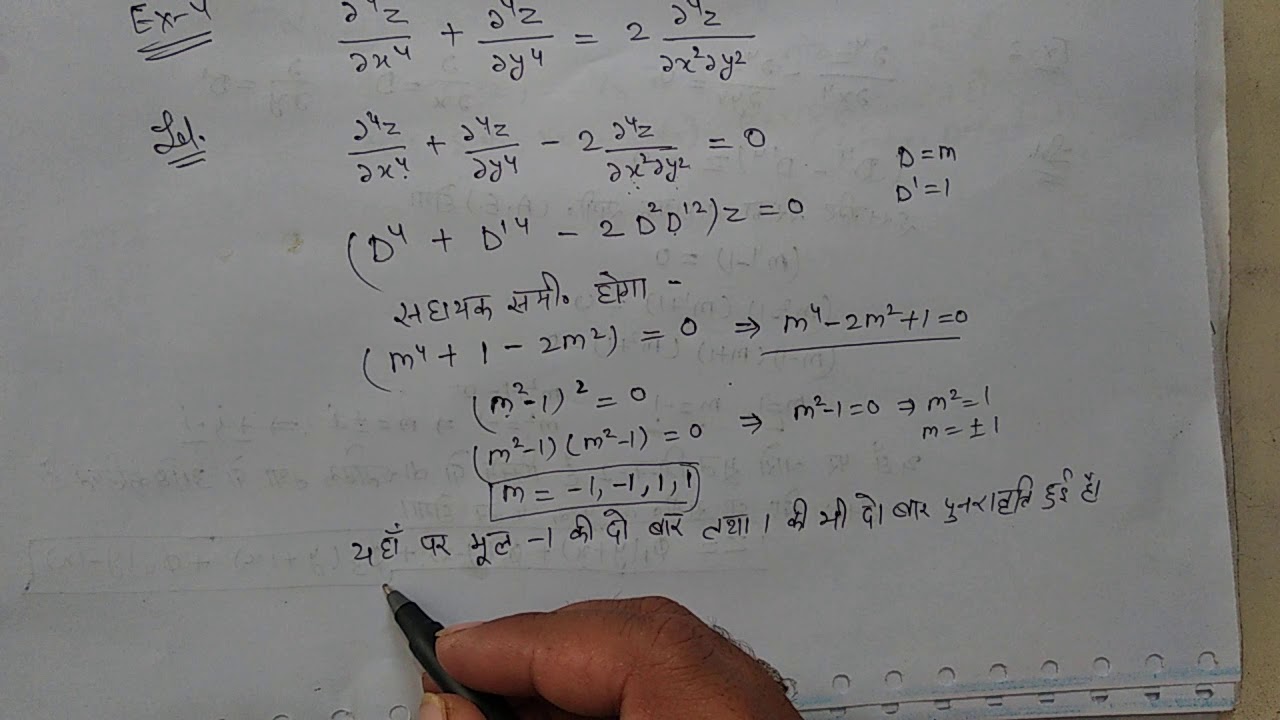 Ex-4 ∂⁴z/∂x⁴ + ∂⁴z/∂y⁴ = 2 ∂⁴z/∂x²∂y²
Sol. ∂⁴z/∂x⁴ + ∂⁴z/∂y⁴ - 2 ∂⁴z/∂x²∂y² = 0
D = m
D' = 1
(D⁴ + D'⁴ - 2D²D'²)z = 0
सहायक समी० होगा -
(m⁴ + 1 - 2m²) = 0 ⇒ m⁴ - 2m² + 1 = 0
(m² - 1)² = 0
(m² - 1)(m² - 1) = 0 ⇒ m² - 1 = 0 ⇒ m² = 1
m = ± 1
m = -1, -1, 1, 1
यहाँ पर मूल -1 की दो बार तथा 1 की भी दो बार पुनरावृत्ति हुई है।